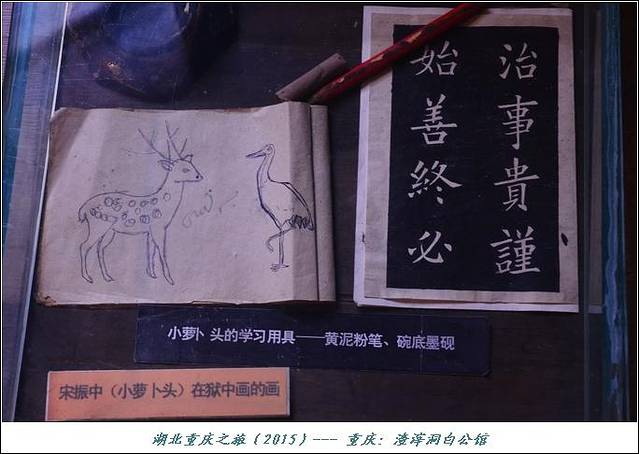 治事貴謹
始善終必
小萝卜 头的学习用具——黄泥粉笔、碗底墨砚
宋振中（小萝卜头）在獄中画的画
湖北重庆之旅（2015）--- 重庆：渣滓洞白公馆